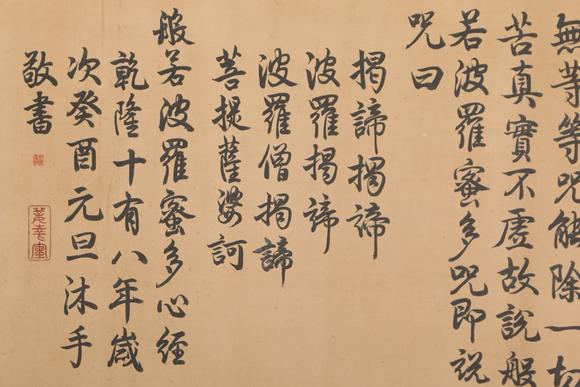 無等等咒能除一切
苦真實不虛故說般
若波羅蜜多咒即說
咒曰
揭諦揭諦
波羅揭諦
波羅僧揭諦
菩提薩婆訶
般若波羅蜜多心經
乾隆十有八年歲
次癸酉元旦沐手
敬書